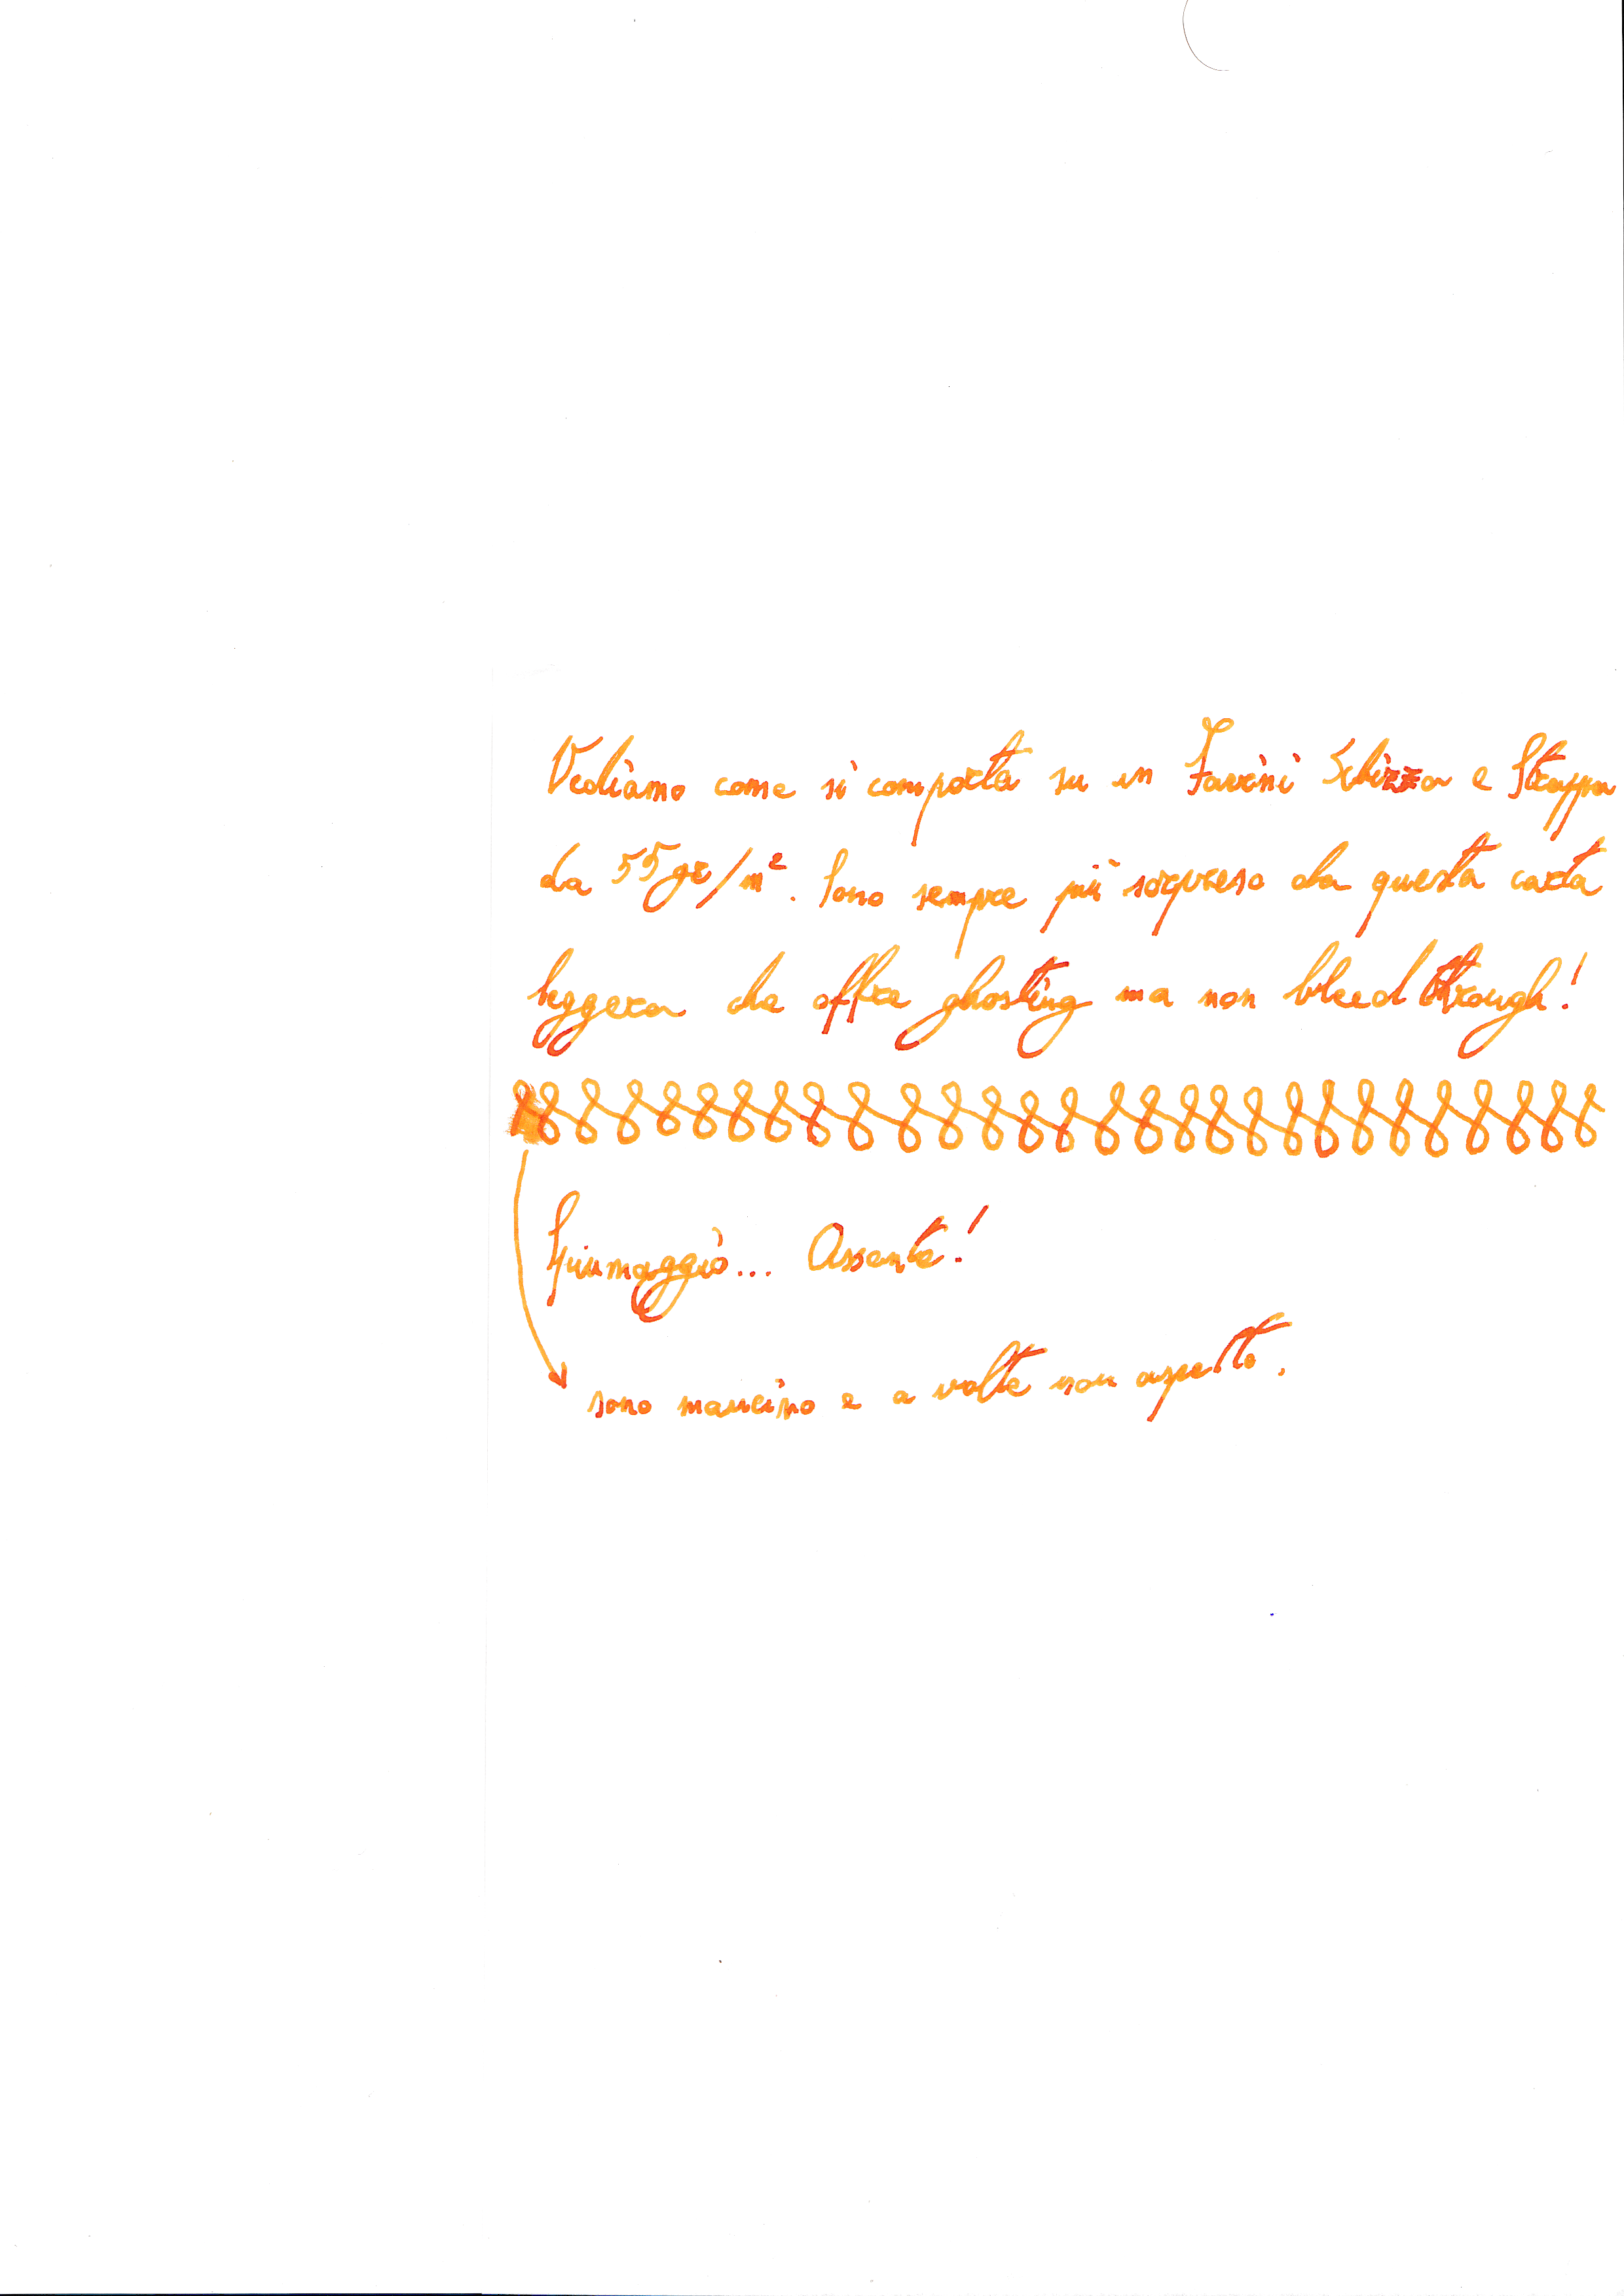 Vediamo come si comporta su un Favini Schizza e Strappa
da 55 gr/m². Sono sempre più sorpreso da questa carta
leggera che offre ghosting ma non bleed through!
Spiumaggio... Assente!
sono mancino e a volte non aspetto.